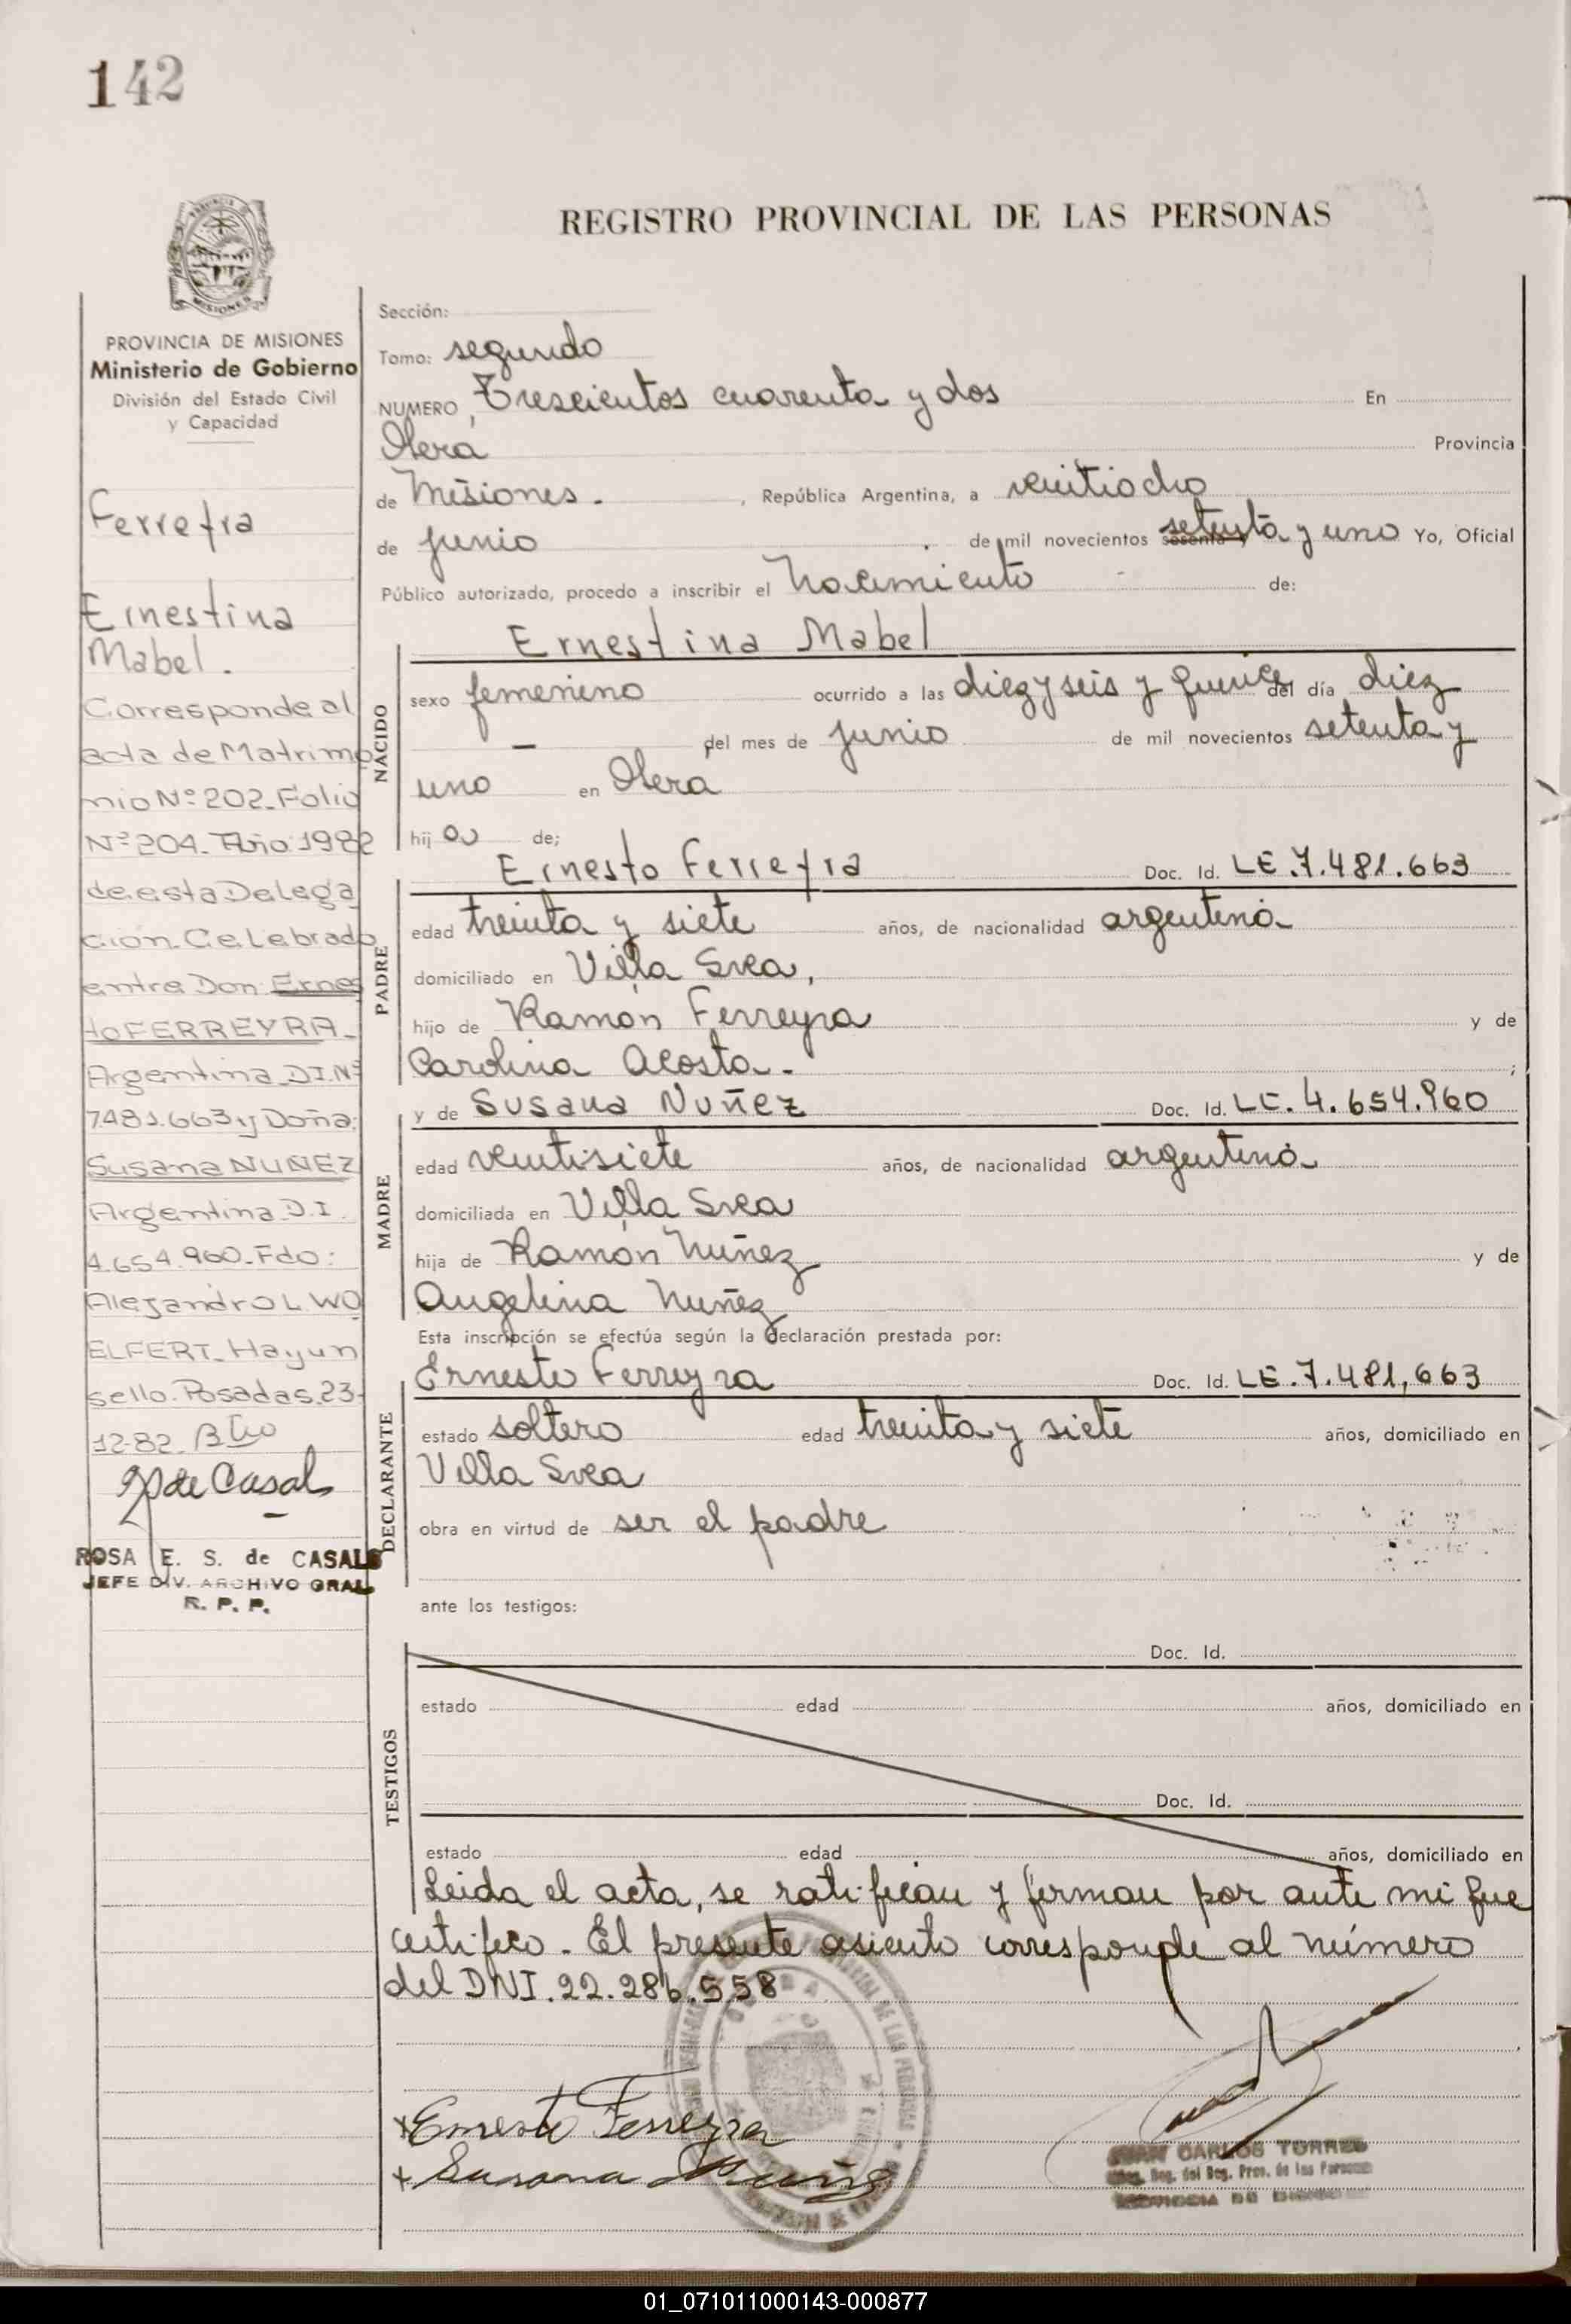 142
REGISTRO PROVINCIAL DE LAS PERSONAS
PROVINCIA DE MISIONES
Ministerio de Gobierno
División del Estado Civil
y Capacidad
Ferreyra
Ernestina
Mabel.
Corresponde al
acta de Matrimo
nio Nº 202_Folio
Nº 204_Año 1982
de esta Delega
ción_Celebrado
entre Don: Ernes
to FERREYRA_
Argentina_DI.Nº
7481.663 y Doña:
Susana NUÑEZ
Argentina_D.I.
4.654.960_Fdo:
Alejandro L. WO
ELFERT_Hay un
sello. Posadas.23-
12-82.
de Casals
ROSA E. S. de CASALS
JEFE DIV. ARCHIVO GRAL
R. P. P.
Sección:
Tomo: segundo
NUMERO, Trescientos cuarenta y dos En
Oberá Provincia
de Misiones. , República Argentina, a veintiocho
de junio de mil novecientos sesenta y setenta y uno Yo, Oficial
Público autorizado, procedo a inscribir el Nacimiento de:
NACIDO
Ernestina Mabel
sexo femenino ocurrido a las diez y seis y quince del día diez
— del mes de junio de mil novecientos setenta y
uno en Oberá
hij a de;
PADRE
Ernesto Ferreyra Doc. Id. LE.7.481.663
edad treinta y siete años, de nacionalidad argentina
domiciliado en Villa Svea,
hijo de Ramón Ferreyra y de
Carolina Acosta.- ;
MADRE
y de Susana Nuñez Doc. Id. LC. 4.654.960
edad veintisiete años, de nacionalidad argentina
domiciliada en Villa Svea
hija de Ramón Nuñez y de
Angelina Nuñez
Esta inscripción se efectúa según la declaración prestada por:
DECLARANTE
Ernesto Ferreyra Doc. Id. LE.7.481,663
estado soltero edad treinta y siete años, domiciliado en
Villa Svea
obra en virtud de ser el padre
ante los testigos:
TESTIGOS
Doc. Id.
estado edad años, domiciliado en
Doc. Id.
estado edad años, domiciliado en
Leida el acta, se ratifican y firman por ante mi que
certifico. El presente asiento corresponde al número
del DNI.22.286.558
x Ernesto Ferreyra
x Susana Nuñez
JUAN CARLOS TORRES
01_071011000143-000877